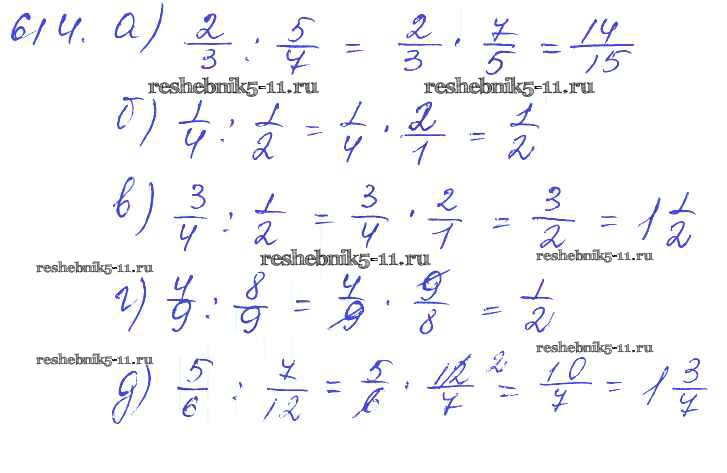 614. а) 2/3 : 5/7 = 2/3 · 7/5 = 14/15
reshebnik5-11.ru reshebnik5-11.ru
б) 1/4 : 1/2 = 1/4 · 2/1 = 1/2
в) 3/4 : 1/2 = 3/4 · 2/1 = 3/2 = 1 1/2
reshebnik5-11.ru reshebnik5-11.ru reshebnik5-11.ru
г) 4/9 : 8/9 = 4/9 · 9/8 = 1/2
reshebnik5-11.ru reshebnik5-11.ru
д) 5/6 : 7/12 = 5/6 · 12 2/7 = 10/7 = 1 3/7